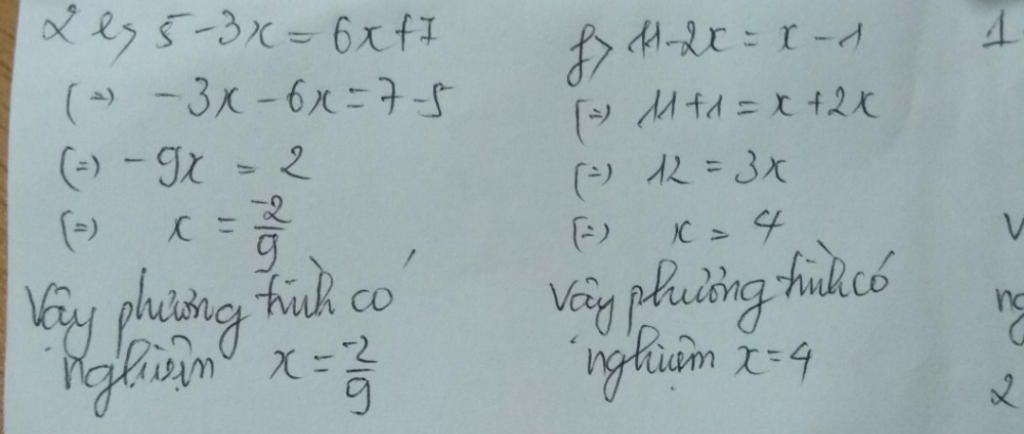 2 e, 5 - 3x = 6x + 7
(=) -3x - 6x = 7 - 5
(=) -9x = 2
(=) x = -2/9
Vậy phương trình có
nghiệm x = -2/9
f) 11 - 2x = x - 1
(=) 11 + 1 = x + 2x
(=) 12 = 3x
(=) x = 4
Vậy phương trình có
nghiệm x = 4
1
V
ng
2